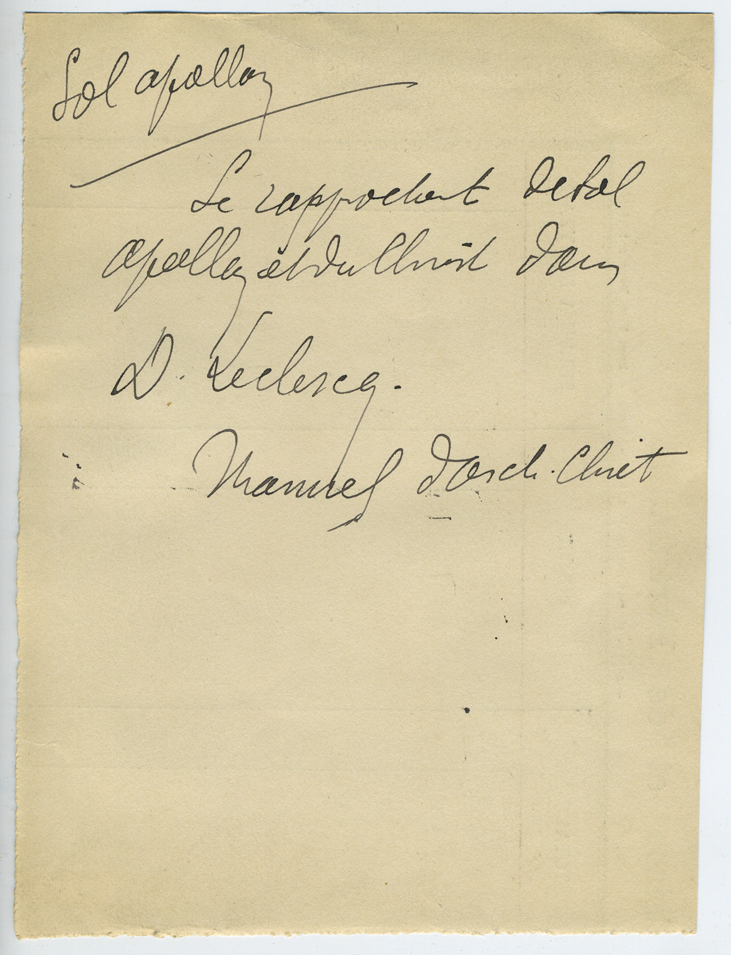 Sol apollon
Le rapprochent de Sol
apollon et du Christ dans
D. Leclercq.
Manuel d'arch. Chret